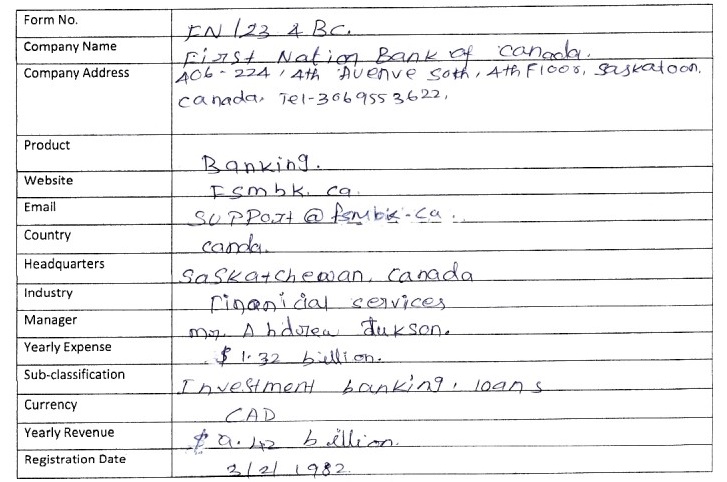 Form No. FN 123 ABC.
Company Name First Nation Bank of Canada.
Company Address 406-224, 4th Avenve Soth, 4th Floor, Saskatoon,
Canada, Tel-306 955 3622,
Product Banking.
Website Fsmbk. ca.
Email SUPPort @ fsmbk-ca.
Country canda.
Headquarters Saskatchewan, Canada
Industry Finanicial services
Manager Mr. Andrew Jukson.
Yearly Expense $ 1.32 billion.
Sub-classification Investment banking, loans
Currency CAD
Yearly Revenue $ 9.42 billion.
Registration Date 3/2/1982.